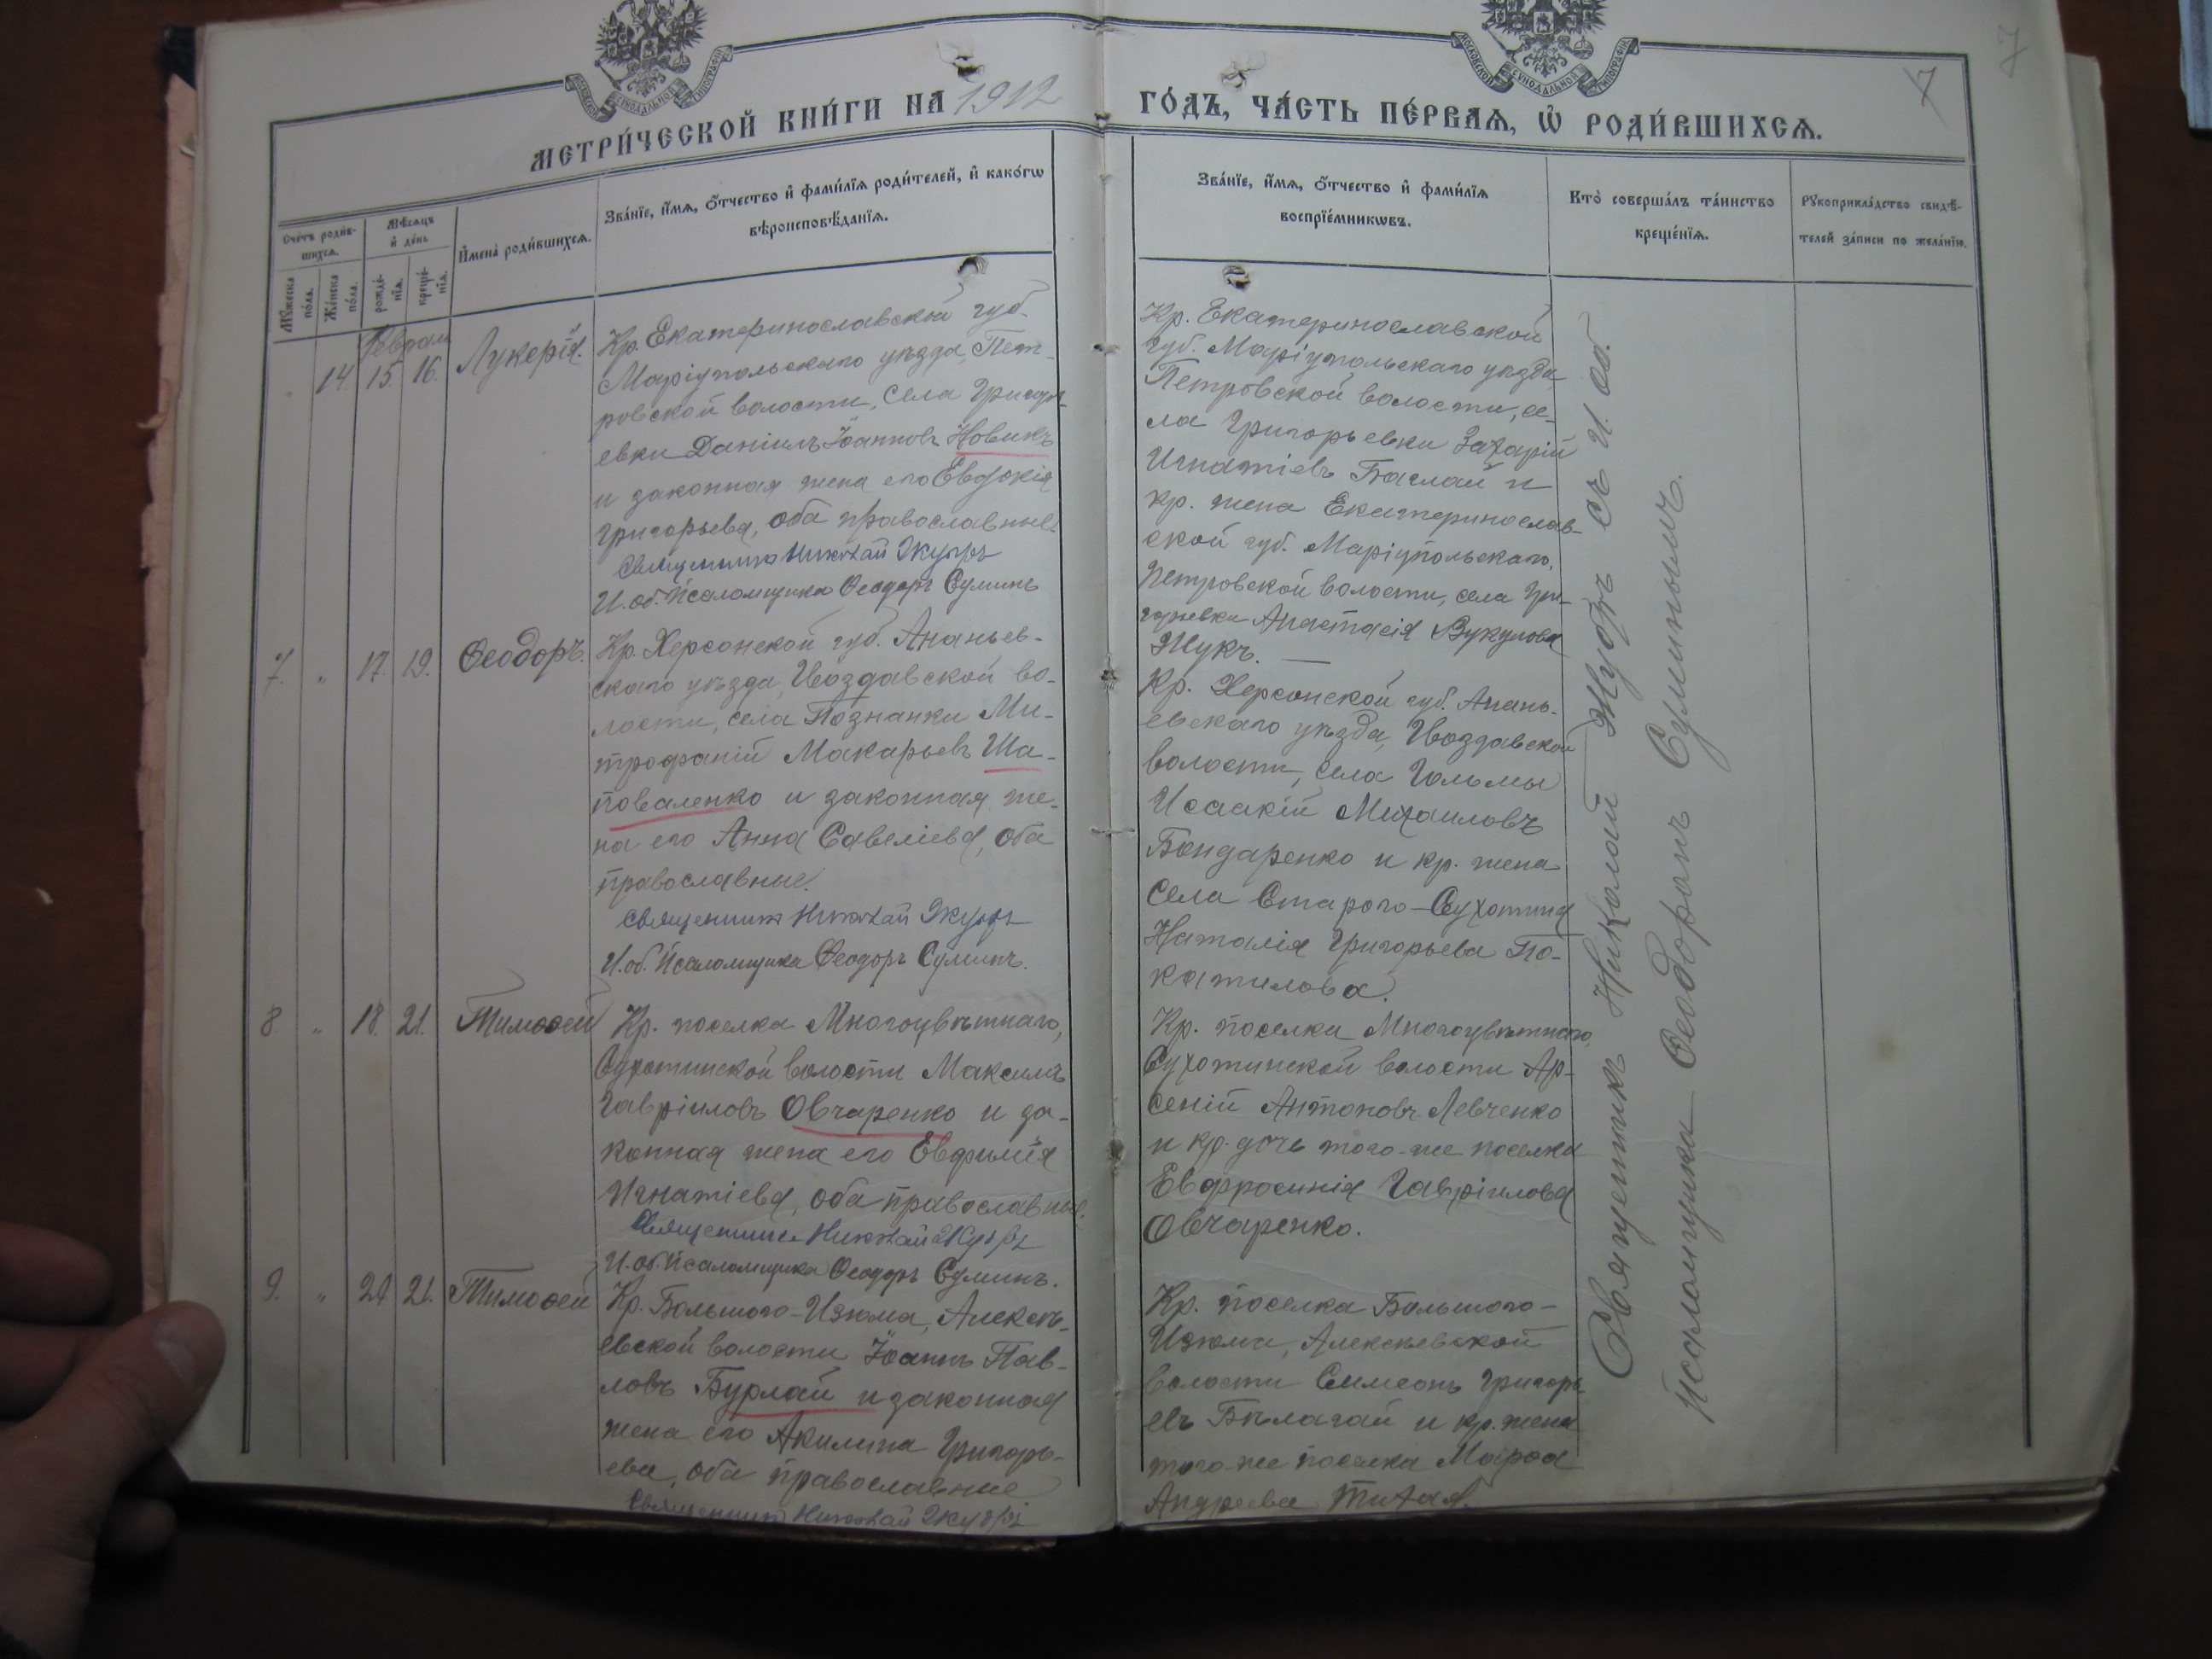 МОСКОВСКОЙ СѴНОДАЛЬНОЙ ТИПОГРАФІИ
МОСКОВСКОЙ СѴНОДАЛЬНОЙ ТИПОГРАФІИ
7
7
МЕТРИ́ЧЕСКОЙ КНИ́ГИ НА 1912 ГО́ДЪ, ЧА́СТЬ ПЕ́РВАѦ, Ѡ҆ РОДИ́ВШИХСѦ.
Сче́тъ роди́в-
шихсѧ.
Мꙋ́жеска
по́ла.
Же́нска
по́ла.
Мѣ́сѧцъ
и҆ де́нь
рожде́-
нїѧ.
креще́-
нїѧ.
И҆мена̀ роди́вшихсѧ.
Зва́нїе, и҆́мѧ, ѻ҆́тчество и҆ фами́лїѧ роди́телей, и҆ како́гѡ
вѣроисповѣ́данїѧ.
Зва́нїе, и҆́мѧ, ѻ҆́тчество и҆ фами́лїѧ
воспрїе́мникѡвъ.
Кто̀ соверша́лъ та́инство
креще́нїѧ.
Рꙋкоприкла́дство свидѣ́-
телей за́писи по жела́нїю.
Феврал
„ 14. 15. 16. Лукерія.
Кр. Екатеринославской губ.
Маріупольскаго уѣзда, Пет-
ровской волости, села Григорь-
евки Даніилъ Іоанновъ Новикъ
и законная жена его Евдокія
Григорьева, оба православные.
Священникъ Николай Жукъ
И. об. псаломщика Ѳеодоръ Суминъ
Кр. Екатеринославской
губ. Маріупольскаго уѣзда
Петровской волости, се-
ла Григорьевки Захарій
Игнатіевъ Баглай и
кр. жена Екатеринослав-
ской губ. Маріупольскаго,
Петровской волости, села Гри-
горьевки Анастасія Вукулова
Жукъ. —
7. „ 17. 19. Ѳеодоръ.
Кр. Херсонской губ. Ананьев-
скаго уѣзда, Гвоздавской во-
лости, села Познанки Ми-
трофаній Макарьевъ Ша-
поваленко и законная же-
на его Анна Савеліева, оба
православные.
Священникъ Николай
И. об. псаломщика Ѳеодоръ Суминъ.
Кр. Херсонской губ. Анань-
евскаго уѣзда, Гвоздавской
волости, села Гольмы
Исаакій Михаиловъ
Бондаренко и кр. жена
села Старого-Сухотина
Наталія Григорьева По-
катилова.
8. „ 18. 21. Тимоѳей
Кр. поселка Многоцвѣтнаго,
Сухотинской волости Максимъ
Гавріиловъ Овчаренко и за-
конная жена его Евфимія
Игнатіева, оба православные.
Священникъ Николай
И. об. псаломщика Ѳеодоръ Суминъ.
Кр. поселка Многоцвѣтнаго,
Сухотинской волости Ар-
сеній Антоновъ Левченко
и кр. дочь того-же поселка
Евфросинія Гавріилова
Овчаренко.
9. „ 21. Тимоѳей
Кр. Большого-Изюма, Алексѣ-
евской волости Іоаннъ Пав-
ловъ Бурлай и законная
жена его Акилина Григорь-
ева, оба православные
Священникъ Николай
Кр. поселка Большого-
Изюма, Алексѣевской
волости Симеонъ Григорь-
евъ Бѣлагай и кр. жена
того-же поселка Марѳа
Андреева Тихая.
Священникъ Николай съ И. об.
псаломщика Ѳеодоромъ Суминымъ.